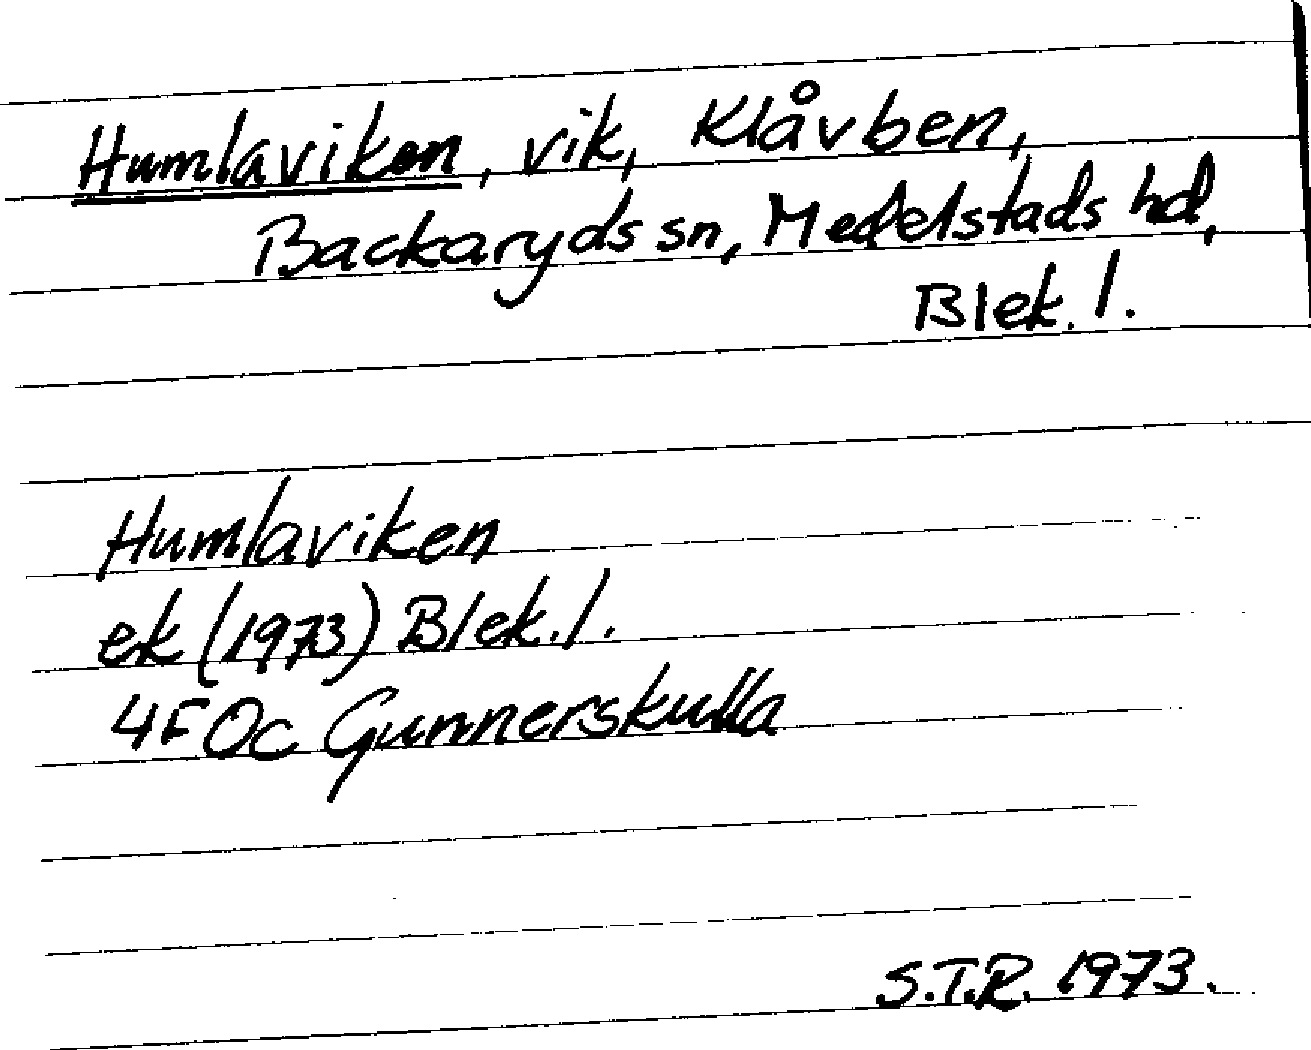 Humlaviken, vik, Klåvben,
Backaryds sn, Medelstads hd,
Blek. l.
Humlaviken
ek (1973) Blek. l.
4F0c Gunnerskulla
S.T.R. 1973.